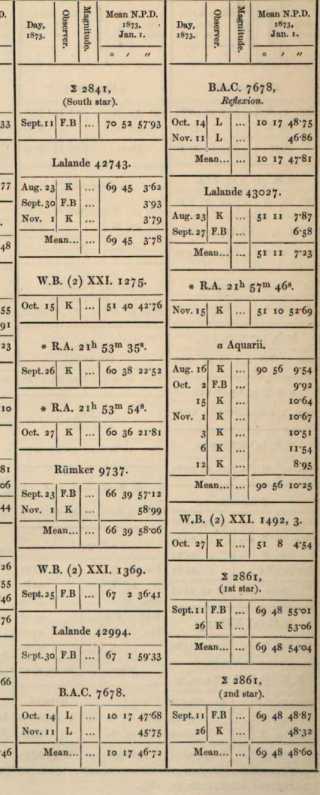 D.
33
77
48
55
91
23
10
81
06
44
26
55
46
76
66
46
Day, 1873. Observer. Magnitude. Mean N.P.D. 1873, Jan. 1.
° ′ ″
Σ 2841,
(South star).
Sept. 11 F.B ... 70 52 57·93
Lalande 42743.
Aug. 23 K ... 69 45 3·62
Sept. 30 F.B ... 3·93
Nov. 1 K ... 3·79
Mean... 69 45 3·78
W.B. (2) XXI. 1275.
Oct. 15 K ... 51 40 42·76
* R.A. 21h 53m 35s.
Sept. 26 K ... 60 38 22·52
* R.A. 21h 53m 54s.
Oct. 27 K ... 60 36 21·81
Rümker 9737.
Sept. 23 F.B ... 66 39 57·12
Nov. 1 K ... 58·99
Mean... 66 39 58·06
W.B. (2) XXI. 1369.
Sept. 25 F.B ... 67 2 36·41
Lalande 42994.
Sept. 30 F.B ... 67 1 59·33
B.A.C. 7678.
Oct. 14 L ... 10 17 47·68
Nov. 11 L ... 45·75
Mean... 10 17 46·72
Day, 1873. Observer. Magnitude. Mean N.P.D. 1873, Jan. 1.
° ′ ″
B.A.C. 7678,
Reflexion.
Oct. 14 L ... 10 17 48·75
Nov. 11 L ... 46·86
Mean... 10 17 47·81
Lalande 43027.
Aug. 23 K ... 51 11 7·87
Sept. 27 F.B ... 6·58
Mean... 51 11 7·23
* R.A. 21h 57m 46s.
Nov. 15 K ... 51 10 52·69
α Aquarii.
Aug. 16 K ... 90 56 9·54
Oct. 2 F.B ... 9·92
15 K ... 10·64
Nov. 1 K ... 10·67
3 K ... 10·51
6 K ... 11·54
12 K ... 8·95
Mean... 90 56 10·25
W.B. (2) XXI. 1492, 3.
Oct. 27 K ... 51 8 4·54
Σ 2861,
(1st star).
Sept. 11 F.B ... 69 48 55·01
26 K ... 53·06
Mean... 69 48 54·04
Σ 2861,
(2nd star).
Sept. 11 F.B ... 69 48 48·87
26 K ... 48·32
Mean... 69 48 48·60